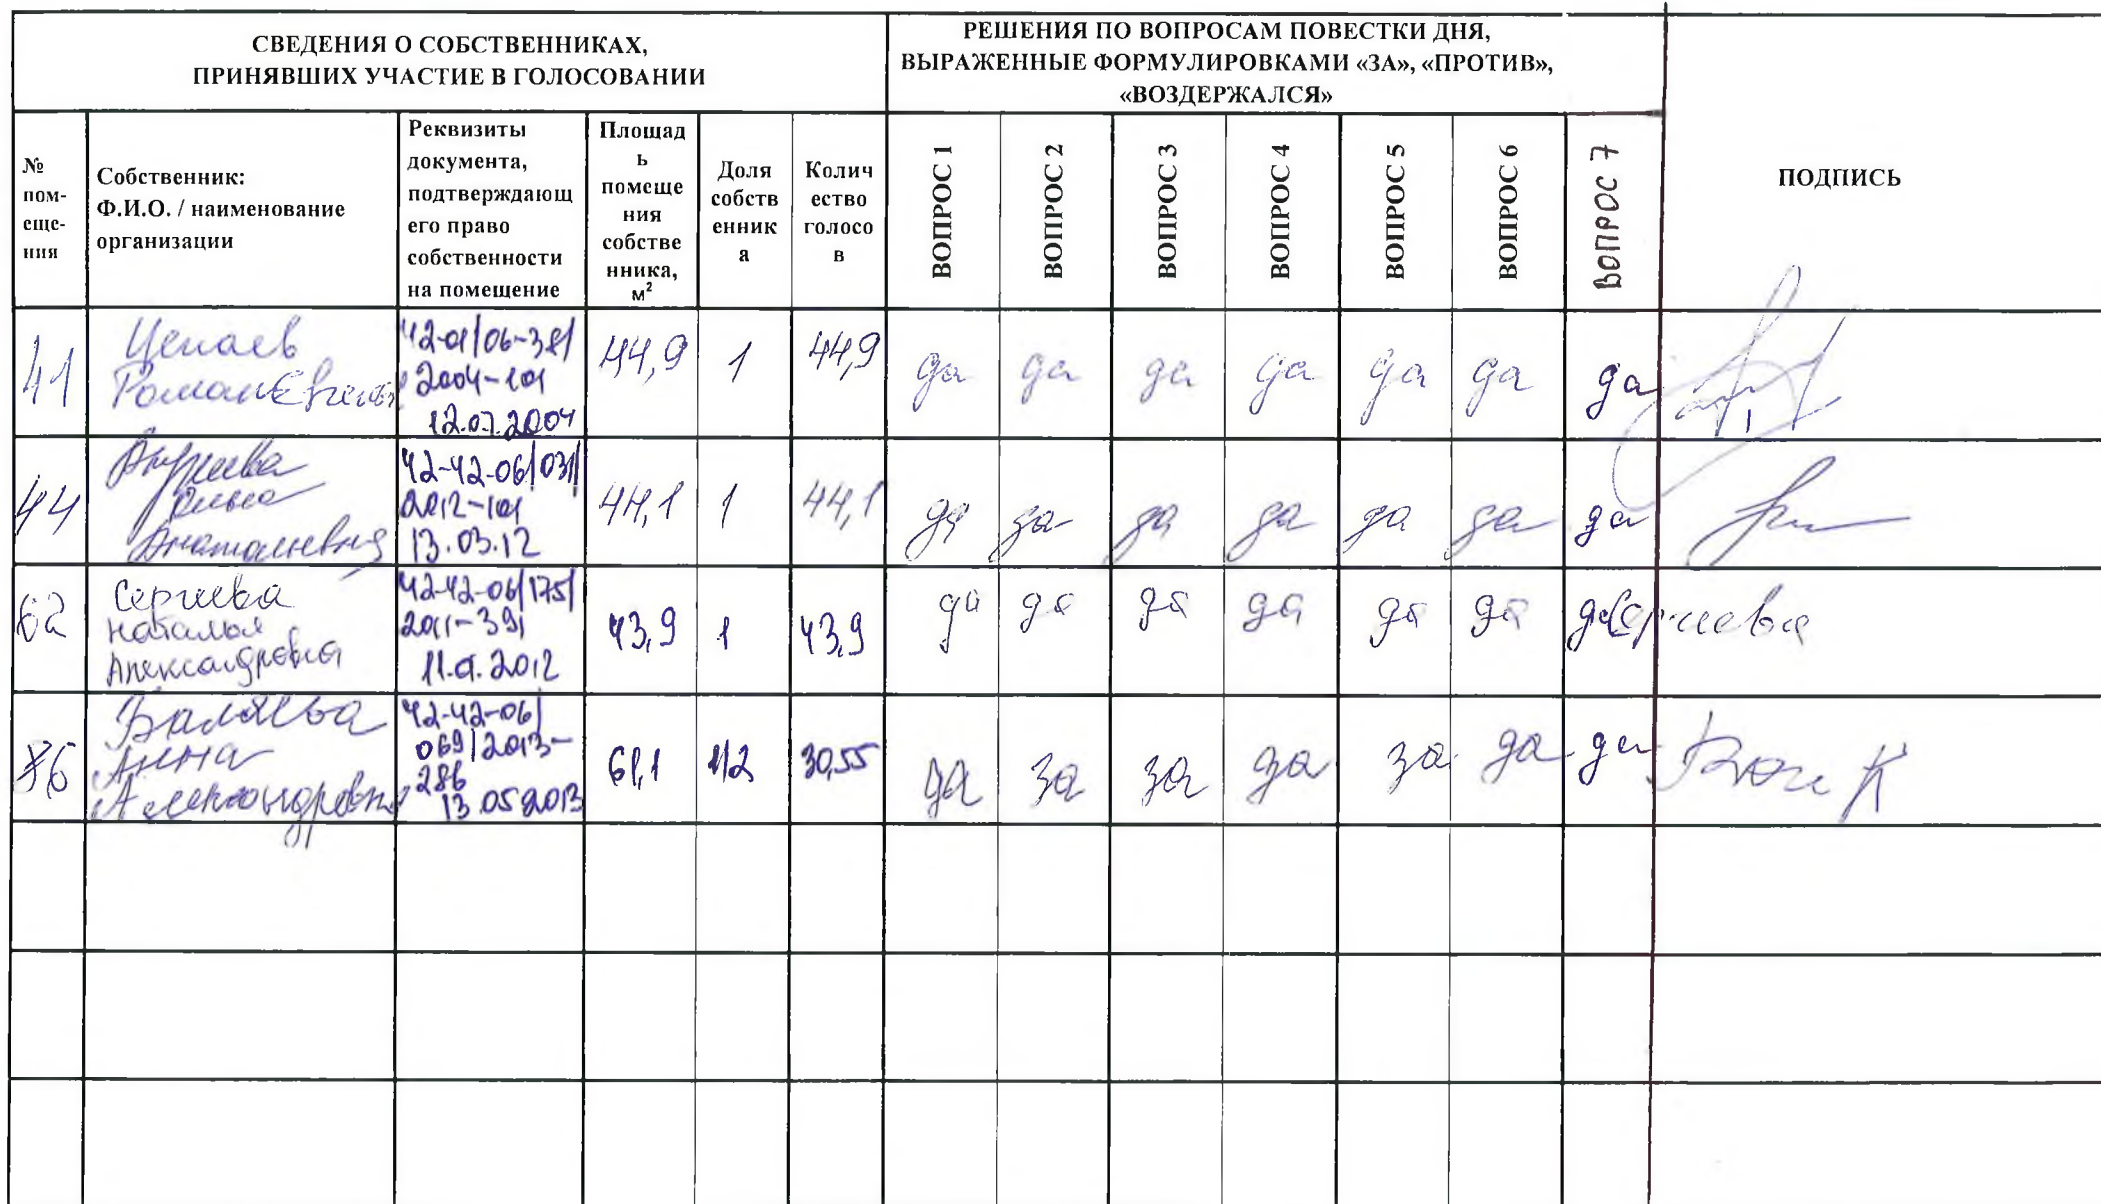 СВЕДЕНИЯ О СОБСТВЕННИКАХ,
ПРИНЯВШИХ УЧАСТИЕ В ГОЛОСОВАНИИ
РЕШЕНИЯ ПО ВОПРОСАМ ПОВЕСТКИ ДНЯ,
ВЫРАЖЕННЫЕ ФОРМУЛИРОВКАМИ «ЗА», «ПРОТИВ»,
«ВОЗДЕРЖАЛСЯ»
№
пом-
еще-
ния
Собственник:
Ф.И.О. / наименование
организации
Реквизиты
документа,
подтверждающ
его право
собственности
на помещение
Площад
ь
помеще
ния
собстве
нника,
м²
Доля
собств
енник
а
Колич
ество
голосо
в
ВОПРОС 1
ВОПРОС 2
ВОПРОС 3
ВОПРОС 4
ВОПРОС 5
ВОПРОС 6
ВОПРОС 7
ПОДПИСЬ
41
Роман
42-01/06-38/
2004-101
12.07.2004
44,9
1
44,9
да
да
да
да
да
да
да
44
Анатольевна
42-42-06/031/
2012-101
13.03.12
44,1
1
44,1
да
за
да
да
да
да
да
62
Сергиева
Наталья
Александровна
42-42-06/175/
2011-391
11.01.2012
43,9
1
43,9
да
да
да
да
да
да
да
Сергиева
Анна
Александровна
42-42-06/
069/2013-
286
13.05.2013
61,1
1/2
30,55
да
за
за
да
за
да
да